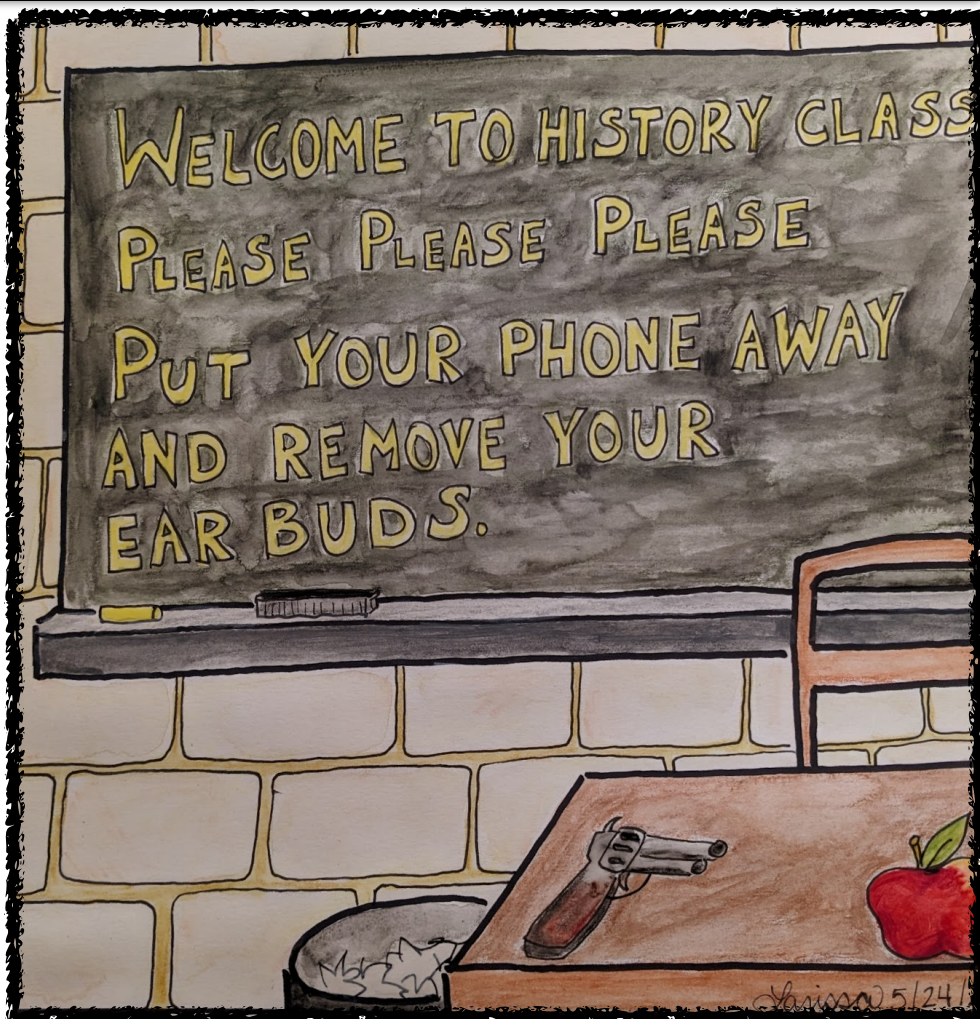 WELCOME TO HISTORY CLASS
PLEASE PLEASE PLEASE
PUT YOUR PHONE AWAY
AND REMOVE YOUR
EAR BUDS.
Larissa 5/24/